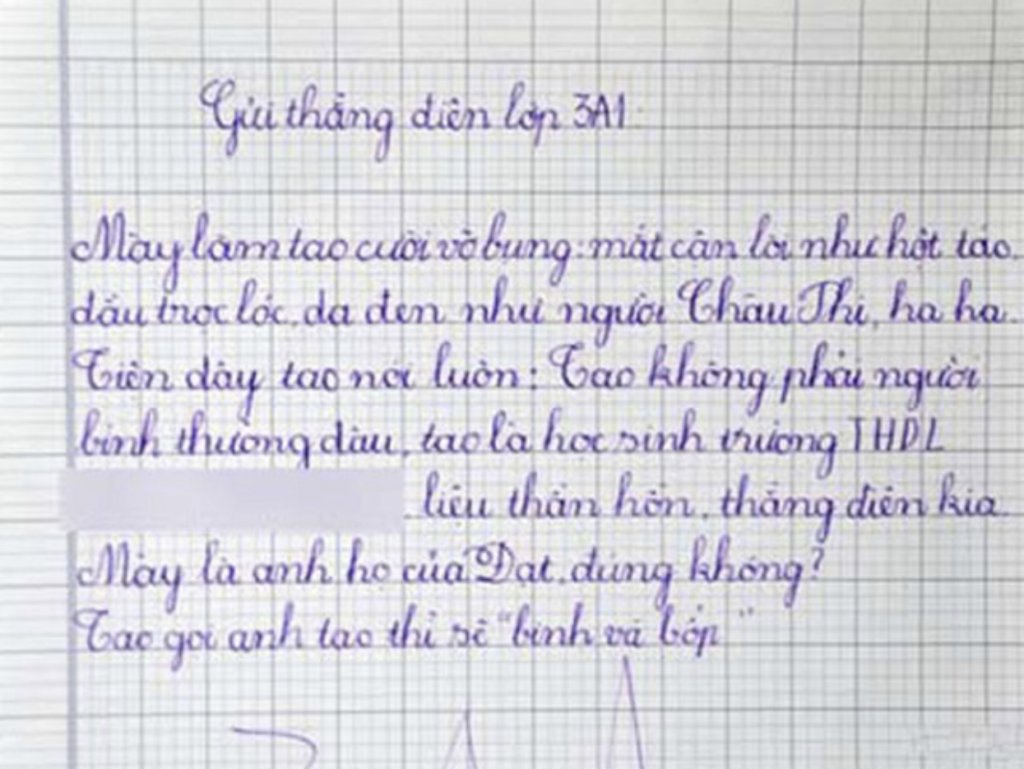 Gửi thằng điên lớp 3A1
Mày làm tao cười vỡ bụng: mắt cận lòi như hột táo,
đầu trọc lóc, da đen như người Châu Thi, ha ha.
Tiện đây tao nói luôn: Tao không phải người
bình thường đâu, tao là học sinh trường THDL
liệu thần hồn, thằng điên kia
Mày là anh họ của Đạt, đúng không?
Tao gọi anh tao thì sẽ "bình vá bốp"